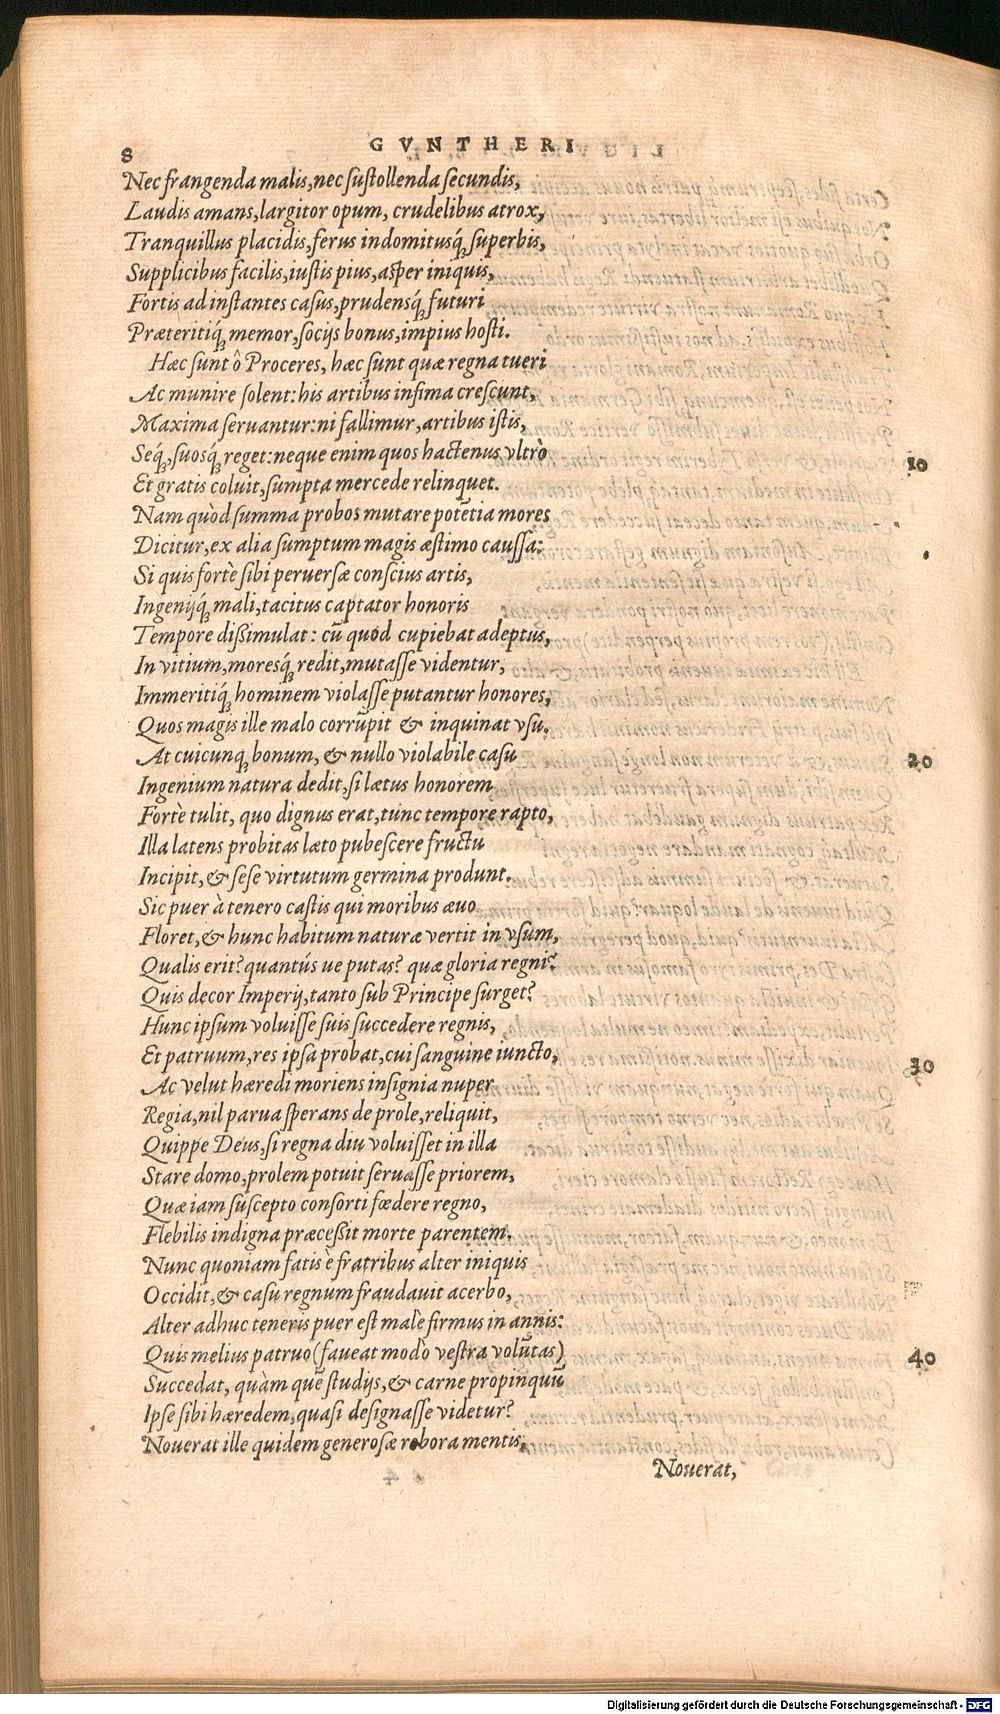 8 GVNTHERI
Nec frangenda malis, nec sustollenda secundis,
Laudis amans, largitor opum, crudelibus atrox,
Tranquillus placidis, ferus indomitusq́; superbis,
Supplicibus facilis, iustis pius, asper iniquis,
Fortis ad instantes casus, prudensq́; futuri
Præteritiq́; memor, socijs bonus, impius hosti.
Hæc sunt ô Proceres, hæc sunt quæ regna tueri
Ac munire solent: his artibus infima crescunt,
Maxima seruantur: ni fallimur, artibus istis,
Seq́;, suosq́; reget: neque enim quos hactenus vltrò 10
Et gratis coluit, sumpta mercede relinquet.
Nam quòd summa probos mutare potētia mores
Dicitur, ex alia sumptum magis æstimo caussa:
Si quis fortè sibi peruersæ conscius artis,
Ingenijq́; mali, tacitus captator honoris
Tempore dißimulat: cū quod cupiebat adeptus,
In vitium, moresq́; redit, mutasse videntur,
Immeritiq́; hominem violasse putantur honores,
Quos magis ille malo corrūpit & inquinat vsu.
At cuicunq; bonum, & nullo violabile casu 20
Ingenium natura dedit, si lætus honorem
Fortè tulit, quo dignus erat, tunc tempore rapto,
Illa latens probitas læto pubescere fructu
Incipit, & sese virtutum germina produnt.
Sic puer à tenero castis qui moribus æuo
Floret, & hunc habitum naturæ vertit in vsum,
Qualis erit? quantús ue putas? quæ gloria regni?
Quis decor Imperij, tanto sub Principe surget?
Hunc ipsum voluisse suis succedere regnis,
Et patruum, res ipsa probat, cui sanguine iuncto, 30
Ac velut hæredi moriens insignia nuper
Regia, nil parua sperans de prole, reliquit,
Quippe Deus, si regna diu voluisset in illa
Stare domo, prolem potuit seruasse priorem,
Quæ iam suscepto consorti fœdere regno,
Flebilis indigna præceßit morte parentem.
Nunc quoniam fatis è fratribus alter iniquis
Occidit, & casu regnum fraudauit acerbo,
Alter adhuc teneris puer est malè firmus in annis:
Quis melius patruo (faueat modò vestra volūtas) 40
Succedat, quàm quē studijs, & carne propinquū
Ipse sibi hæredem, quasi designasse videtur?
Nouerat ille quidem generosæ robora mentis,
Nouerat,
Digitalisierung gefördert durch die Deutsche Forschungsgemeinschaft - DFG